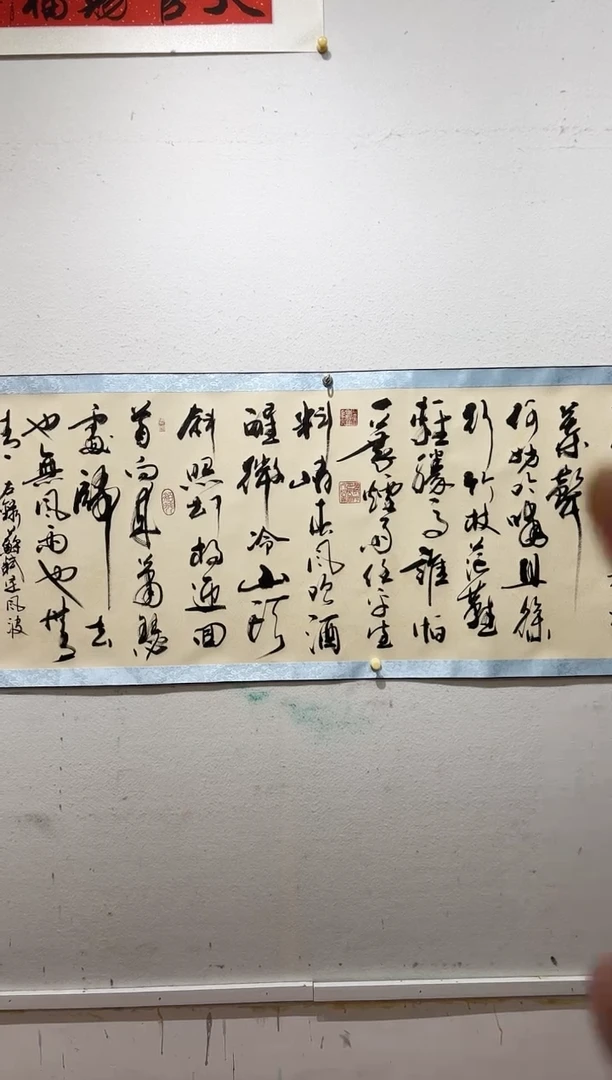 天官賜福
葉聲
何妨吟嘯且徐
行竹杖芒鞋
輕勝馬誰怕
一蓑煙雨任平生
料峭春風吹酒
醒微冷山頭
斜照却相迎回
首向來蕭瑟
處歸去
也無風雨也無
晴 右錄蘇軾定風波